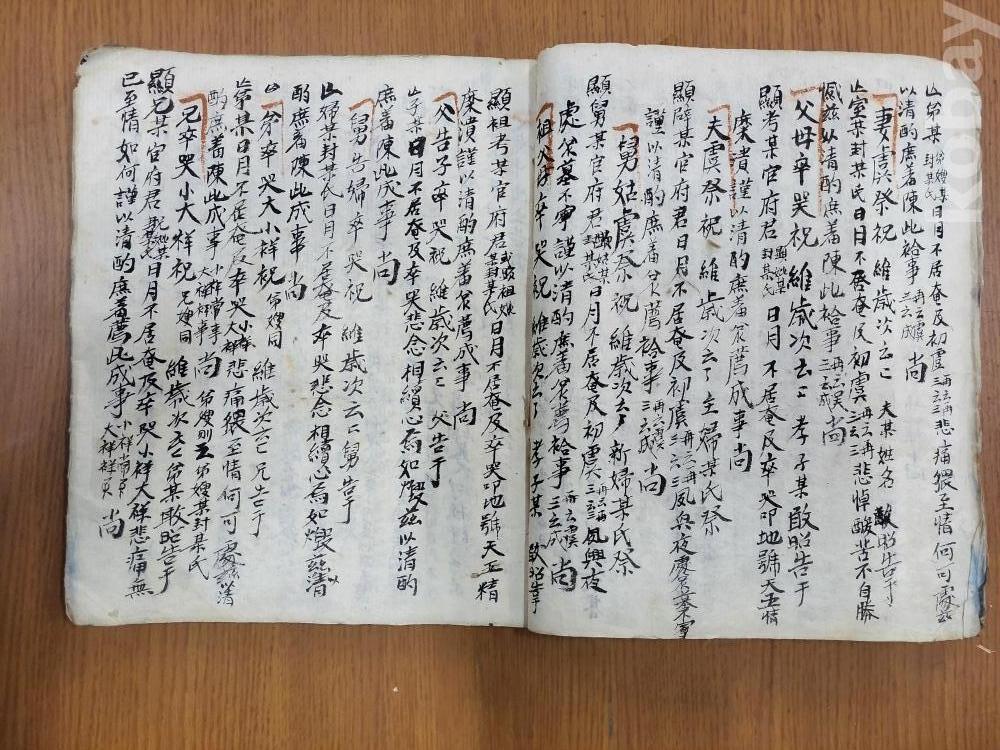 亡弟某 弟嫂某封某氏 日月不居奄及初虞 再云再三云三 悲痛猥至情何可處玆
以清酌庶羞陳此祫事 再云虞三云成 尙
妻虞祭祝 維歲次云云 夫某姓名 敢昭告于
亡室某封某氏日月不居奄及初虞 再云再三云三 悲悼酸苦不自勝
堪玆以清酌庶羞陳此祫事 再云虞三云成 尙
父母卒哭祝 維歲次云云 孝子某敢昭告于
顯考某官府君 顯妣某封某氏 日月不居奄及卒哭叩地號天五情
糜潰謹以清酌庶羞哀薦成事 尙
夫虞祭祝 維歲次云云 主婦某氏祭
顯辟某官府君日月不居奄及初虞 再云再三云三 夙興夜處哀慕不寧
謹以清酌庶羞哀薦祫事 再云虞三云成 尙
舅姑虞祭祝 維歲次云云 新婦某氏祭
顯舅某官府君 顯姑某封某氏 日月不居奄及初虞 再云再三云三 夙興夜
處哀慕不寧謹以清酌庶羞哀薦祫事 再云虞三云成 尙
祖父母卒哭祝 維歲次云云 孝孫某 敢昭告于
顯祖考某官府君 或顯祖妣某封某氏 日月不居奄及卒哭叩地號天五精
糜潰謹以清酌庶羞哀薦成事 尙
父告子卒哭祝 維歲次云云 父告于
亡子某日月不居奄及卒哭悲念相續心焉如燬玆以清酌
庶羞陳此成事 尙
舅告婦卒哭祝 維歲次云云 舅告于
亡婦某封某氏日月不居奄及卒哭悲念相續心焉如燬玆以清
酌庶羞陳此成事 尙
弟卒哭大小祥祝 弟嫂同 維歲次云云 兄告于
亡弟某日月不居奄及卒哭 小祥大祥 悲痛猥至情何可處玆以清
酌庶羞陳此成事 小祥常事大祥祥事 尙 弟嫂則云弟嫂某封某氏
兄卒哭小大祥祝 兄嫂同 維歲次云云 弟某敢昭告于
顯兄某官府君 日月不居奄及卒哭小祥大祥悲痛無
已至情如何謹以清酌庶羞薦此成事 小祥常事大祥祥事 尙
kobay